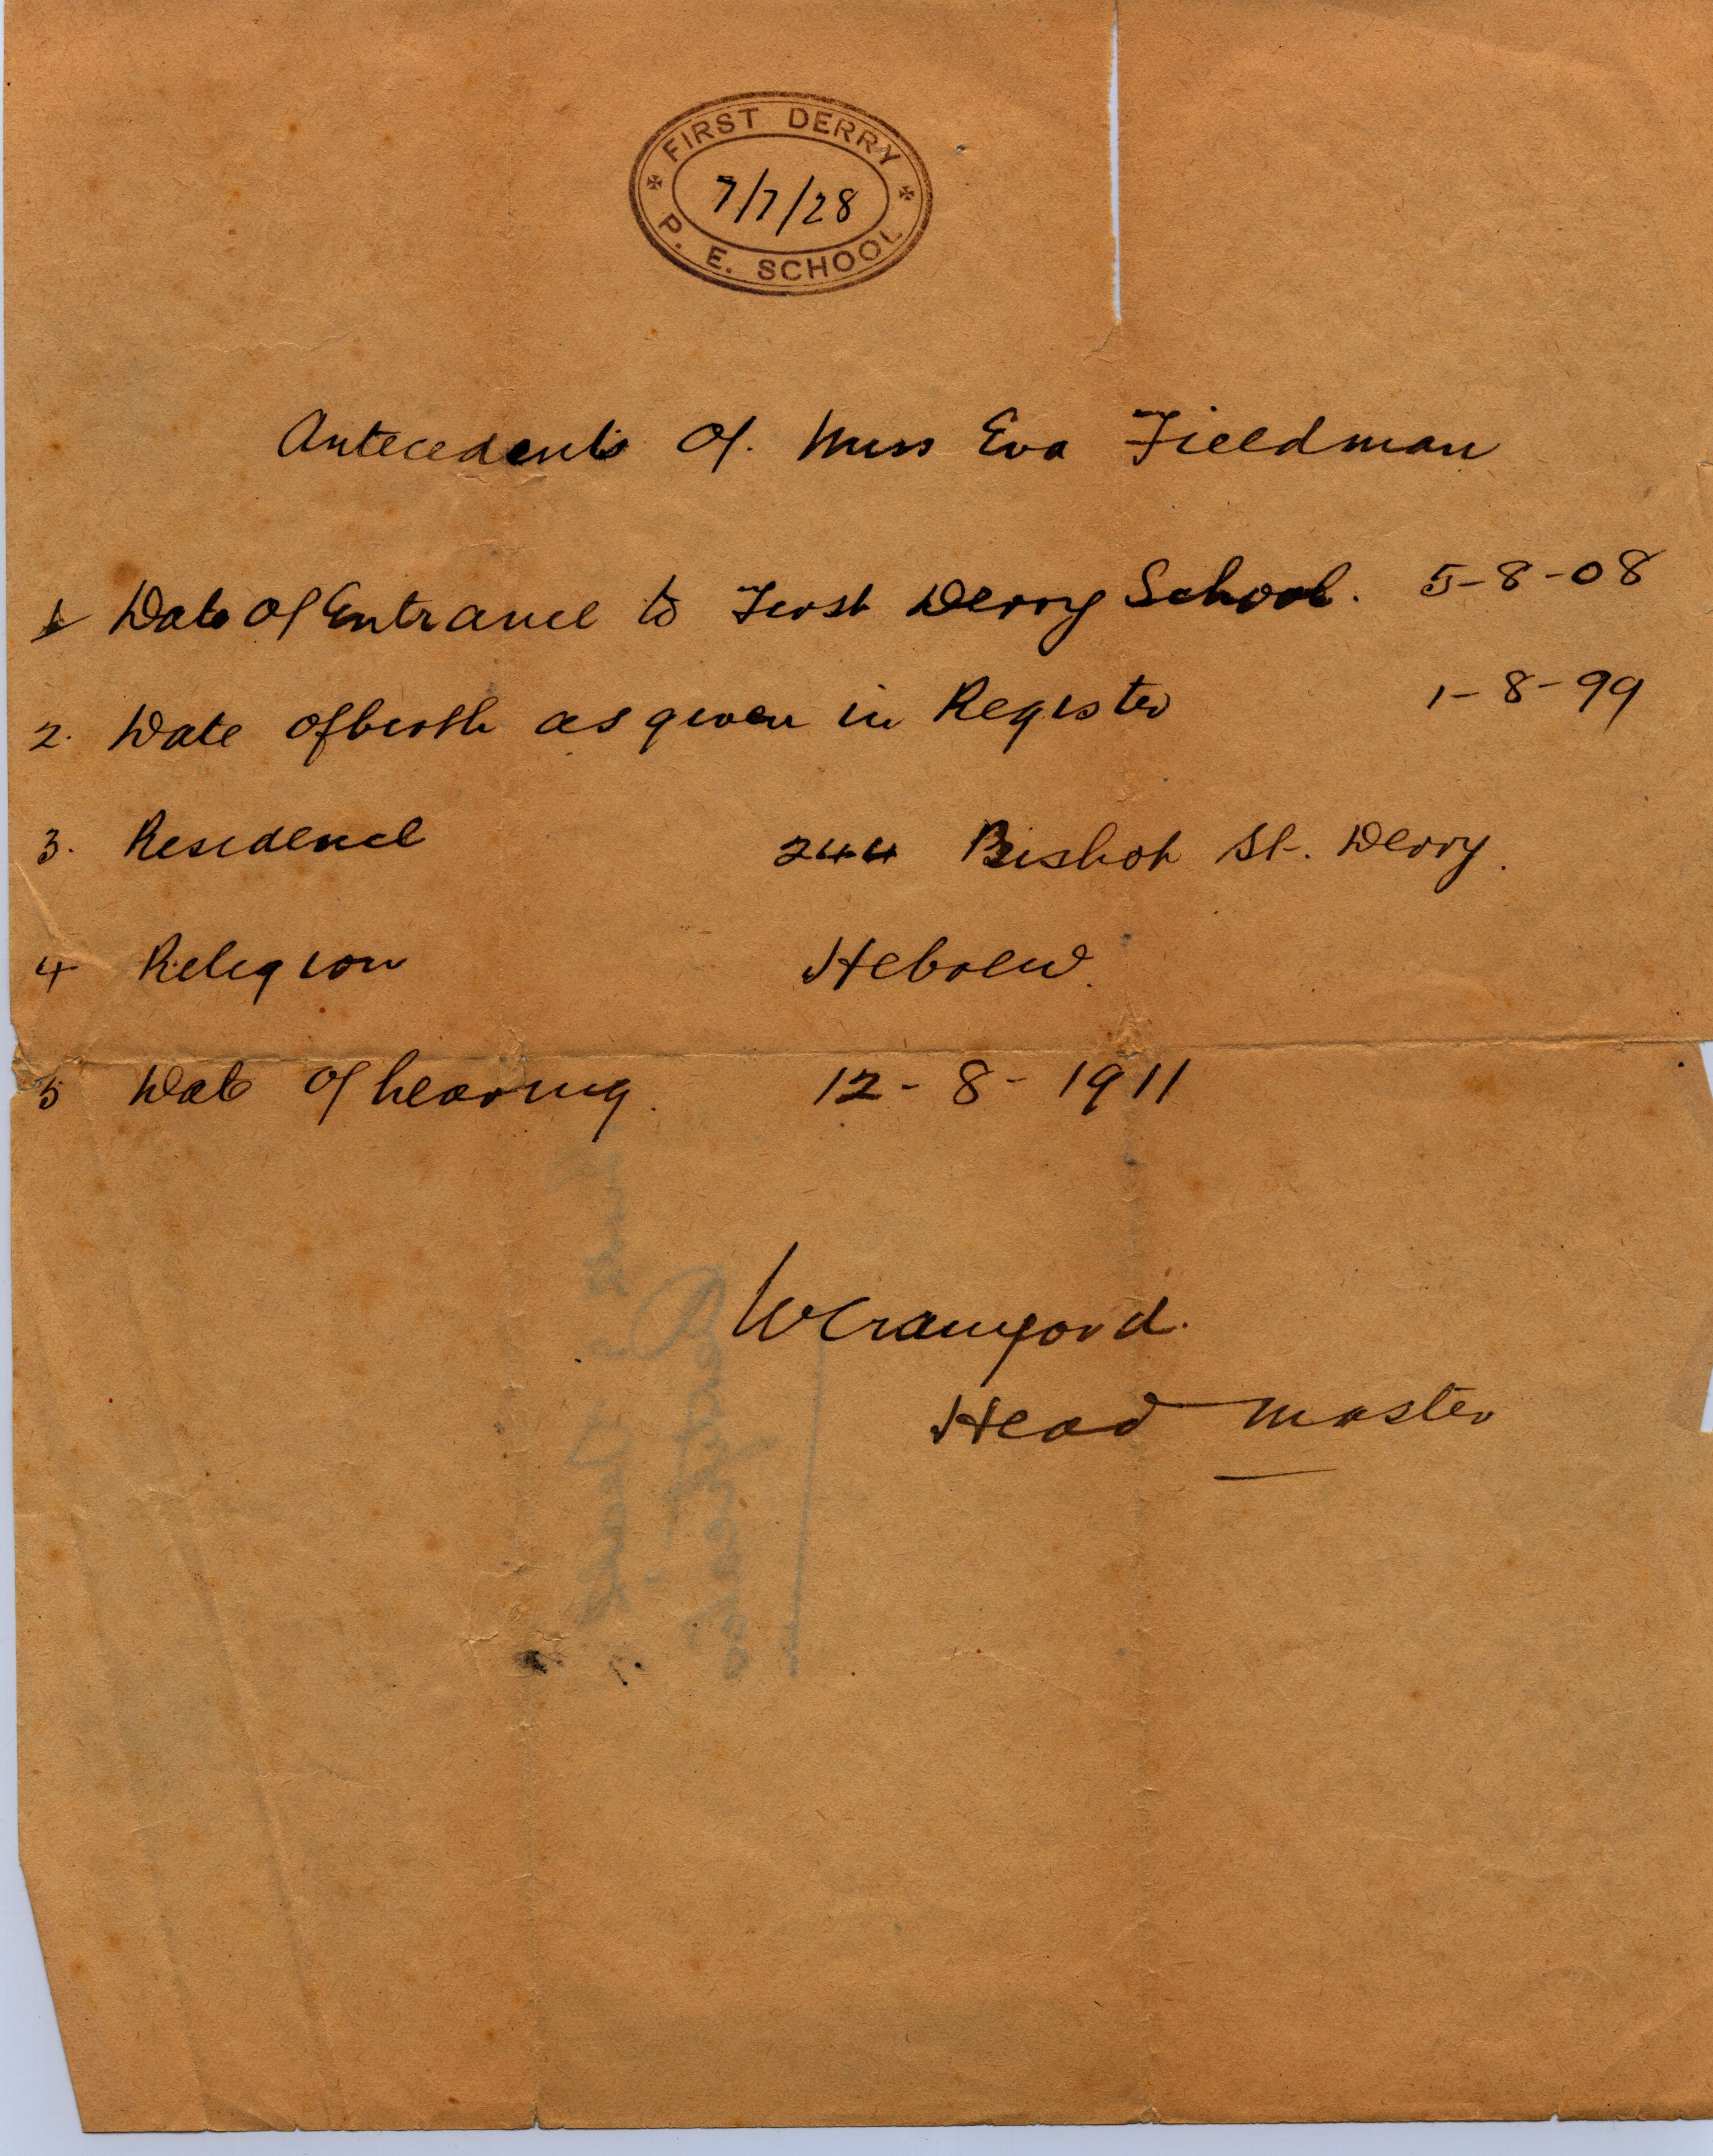 FIRST DERRY
7/7/28
P. E. SCHOOL
Antecedents Of. Miss Eva Fieldman
1 Date Of Entrance to First Derry School. 5-8-08
2. Date of birth as given in Register 1-8-99
3. Residence 244 Bishop St. Derry.
4 Religion Hebrew.
5 Date Of leaving. 12-8-1911
W Crawford.
Head Master